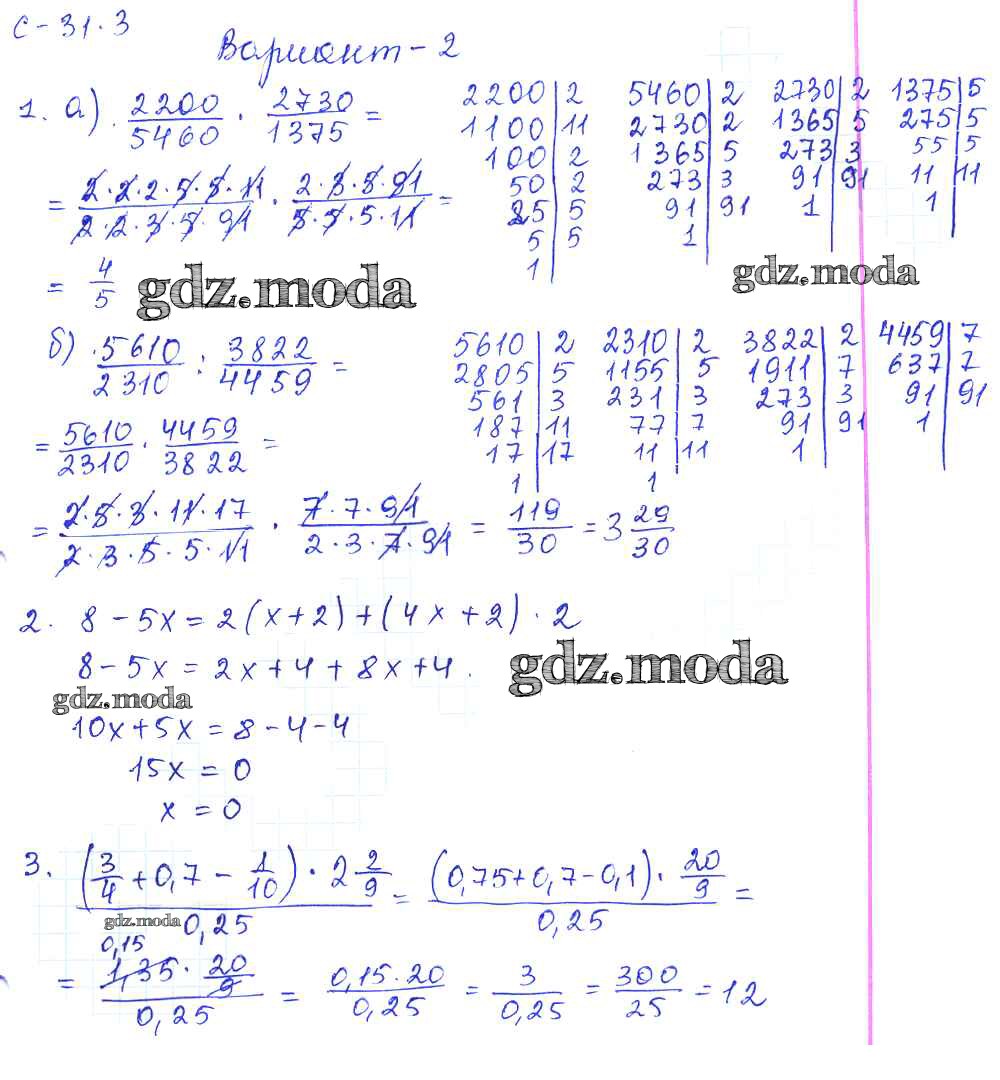 С-31.3
Вариант-2
1. а) 2200/5460 · 2730/1375 =
= 2·2·2·5·5·11/2·2·3·5·91 · 2·3·5·91/5·5·5·11 =
= 4/5
2200|2
1100|11
100|2
50|2
25|5
5|5
1
5460|2
2730|2
1365|5
273|3
91|91
1
2730|2
1365|5
273|3
91|91
1
1375|5
275|5
55|5
11|11
1
gdz.moda
gdz.moda
б) 5610/2310 : 3822/4459 =
= 5610/2310 · 4459/3822 =
= 2·5·3·11·17/2·3·5·5·11 · 7·7·91/2·3·7·91 = 119/30 = 3 29/30
5610|2
2805|5
561|3
187|11
17|17
1
2310|2
1155|5
231|3
77|7
11|11
1
3822|2
1911|7
273|3
91|91
1
4459|7
637|7
91|91
1
2. 8-5x=2(x+2)+(4x+2)·2
8-5x=2x+4+8x+4.
gdz.moda
gdz.moda
10x+5x=8-4-4
15x=0
x=0
3. (3/4+0,7-1/10)·2 2/9 / 0,25 = (0,75+0,7-0,1)·20/9 / 0,25 =
gdz.moda
0,15
= 1,35·20/9 / 0,25 = 0,15·20/0,25 = 3/0,25 = 300/25 = 12